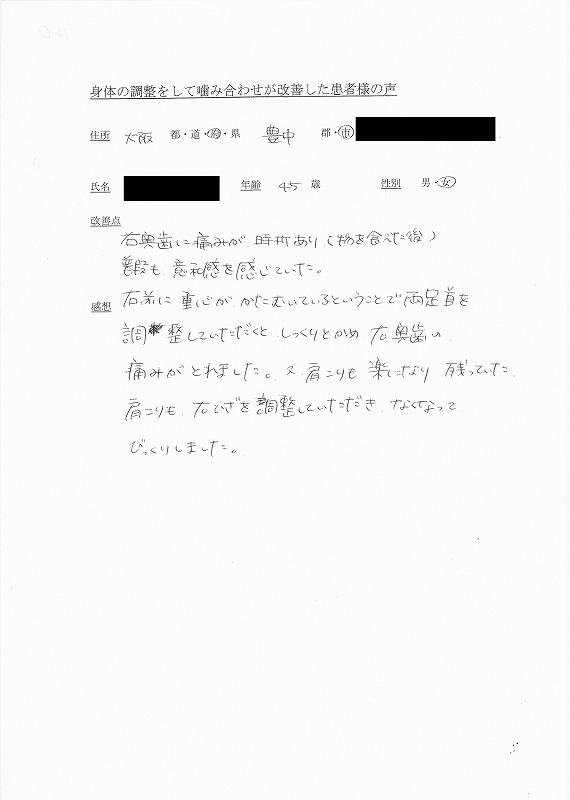 身体の調整をして噛み合わせが改善した患者様の声
住所 大阪 都・道・府・県 豊中 郡・市
氏名 年齢 45 歳 性別 男・女
改善点
右奥歯に痛みが、時折あり、(物を食べた後)
も、意和感を感じていた。
感想 右前に重心が、かたむいているということで両足首を
調整していただくと、しっくりとかめ右奥歯の
痛みがとれました。又、肩こりも楽になり残っていた
肩こりも、右ひざを調整していただき、なくなって
びっくりしました。